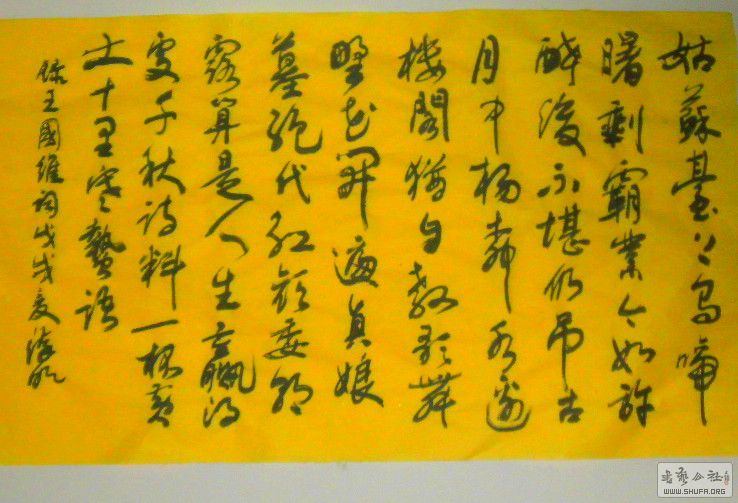 姑蘇臺上烏啼
曙剩霸業今如許
醉後不堪仍吊古
月中楊柳水邊
樓閣猶自教歌舞
野花開遍真娘
墓絶代紅顏委朝
露算是人生贏得
處千秋詩料一抔黃
土十里寒螿語
錄王國維詞戊戌夏
書藝公社
WWW.SHUFA.ORG